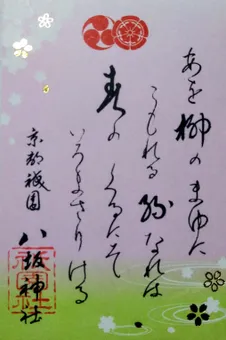 あを柳のまゆに
こもれる糸なれは
春のくるにそ
いろまさりける
京都祇園
八坂神社